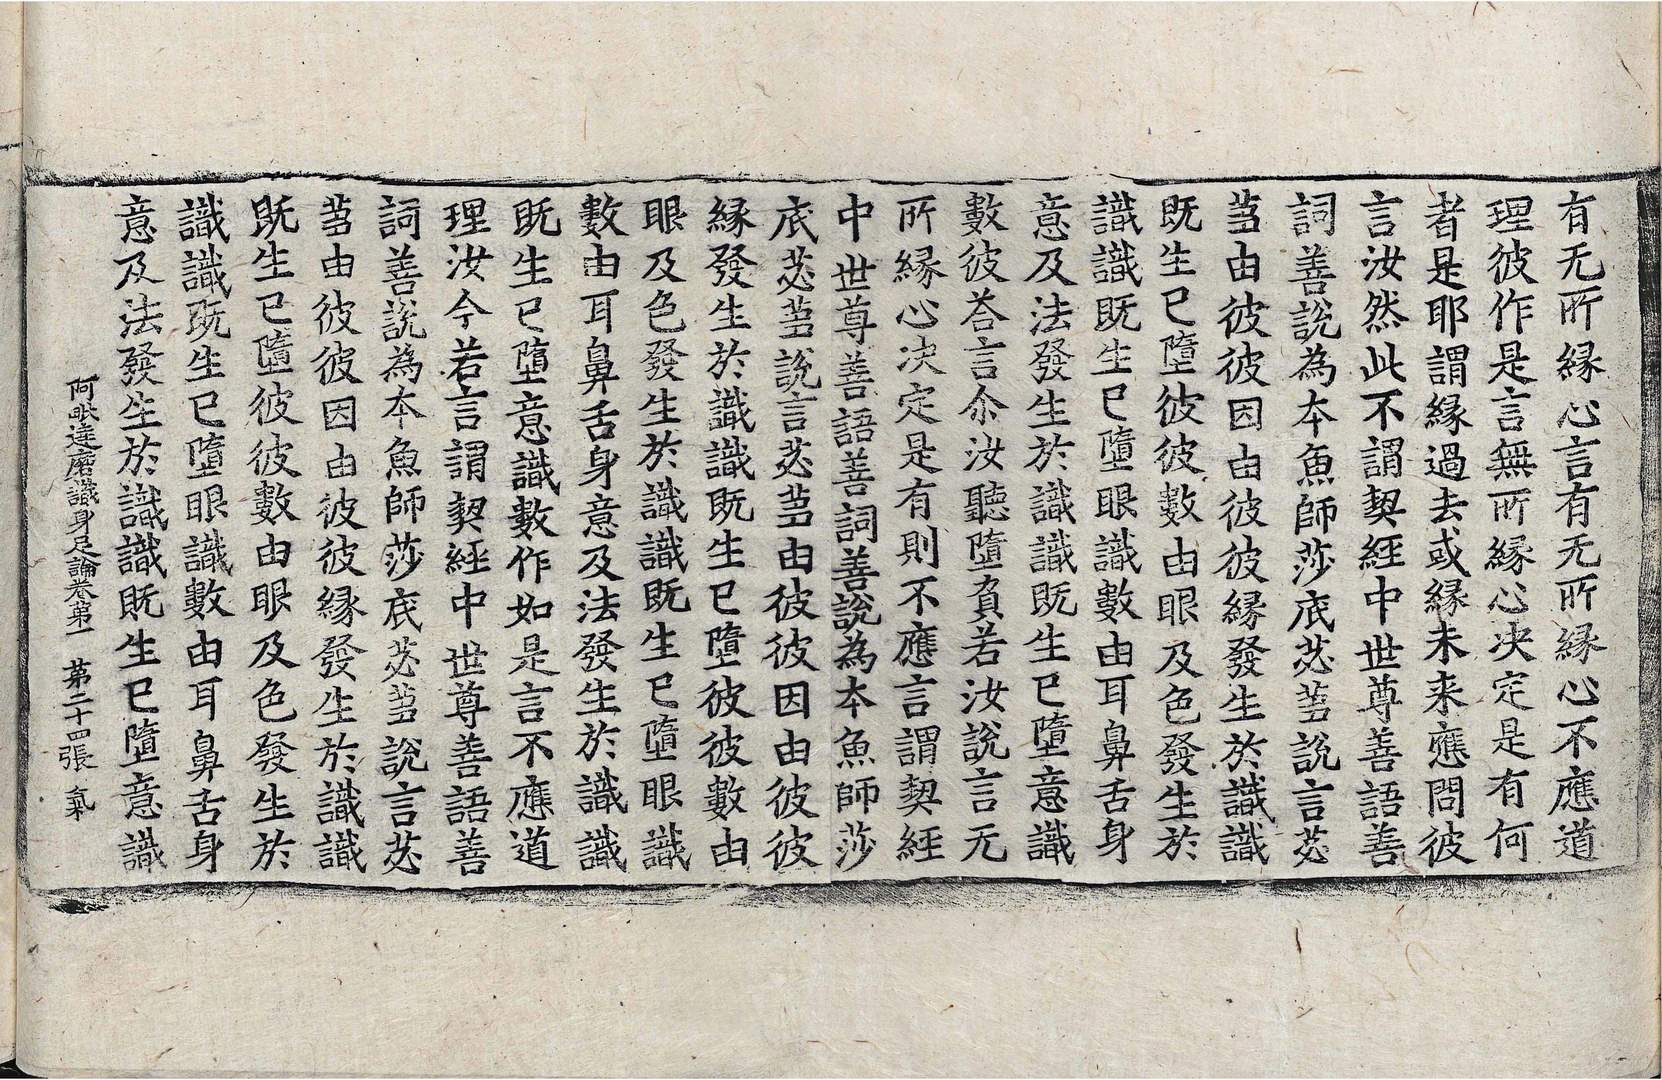 有无所緣心言有无所緣心不應道
理彼作是言無所緣心决定是有何
者是耶謂緣過去或緣未来應問彼
言汝然此不謂契經中世尊善語善
詞善說為本魚師莎底苾蒭說言苾
蒭由彼彼因由彼彼緣發生於識識
既生已墮彼彼數由眼及色發生於
識識既生已墮眼識數由耳鼻舌身
意及法發生於識識既生已墮意識
數彼荅言尒汝聽墮負若汝說言无
所緣心决定是有則不應言謂契經
中世尊善語善詞善說為本魚師莎
底苾蒭說言苾蒭由彼彼因由彼彼
緣發生於識識既生已墮彼彼數由
眼及色發生於識識既生已墮眼識
數由耳鼻舌身意及法發生於識識
既生已墮意識數作如是言不應道
理汝今若言謂契經中世尊善語善
詞善說為本魚師莎底苾蒭說言苾
蒭由彼彼因由彼彼緣發生於識識
既生已墮彼彼數由眼及色發生於
識識既生已墮眼識數由耳鼻舌身
意及法發生於識識既生已墮意識
阿毗達磨識身足論卷第一 第二十四張 氣